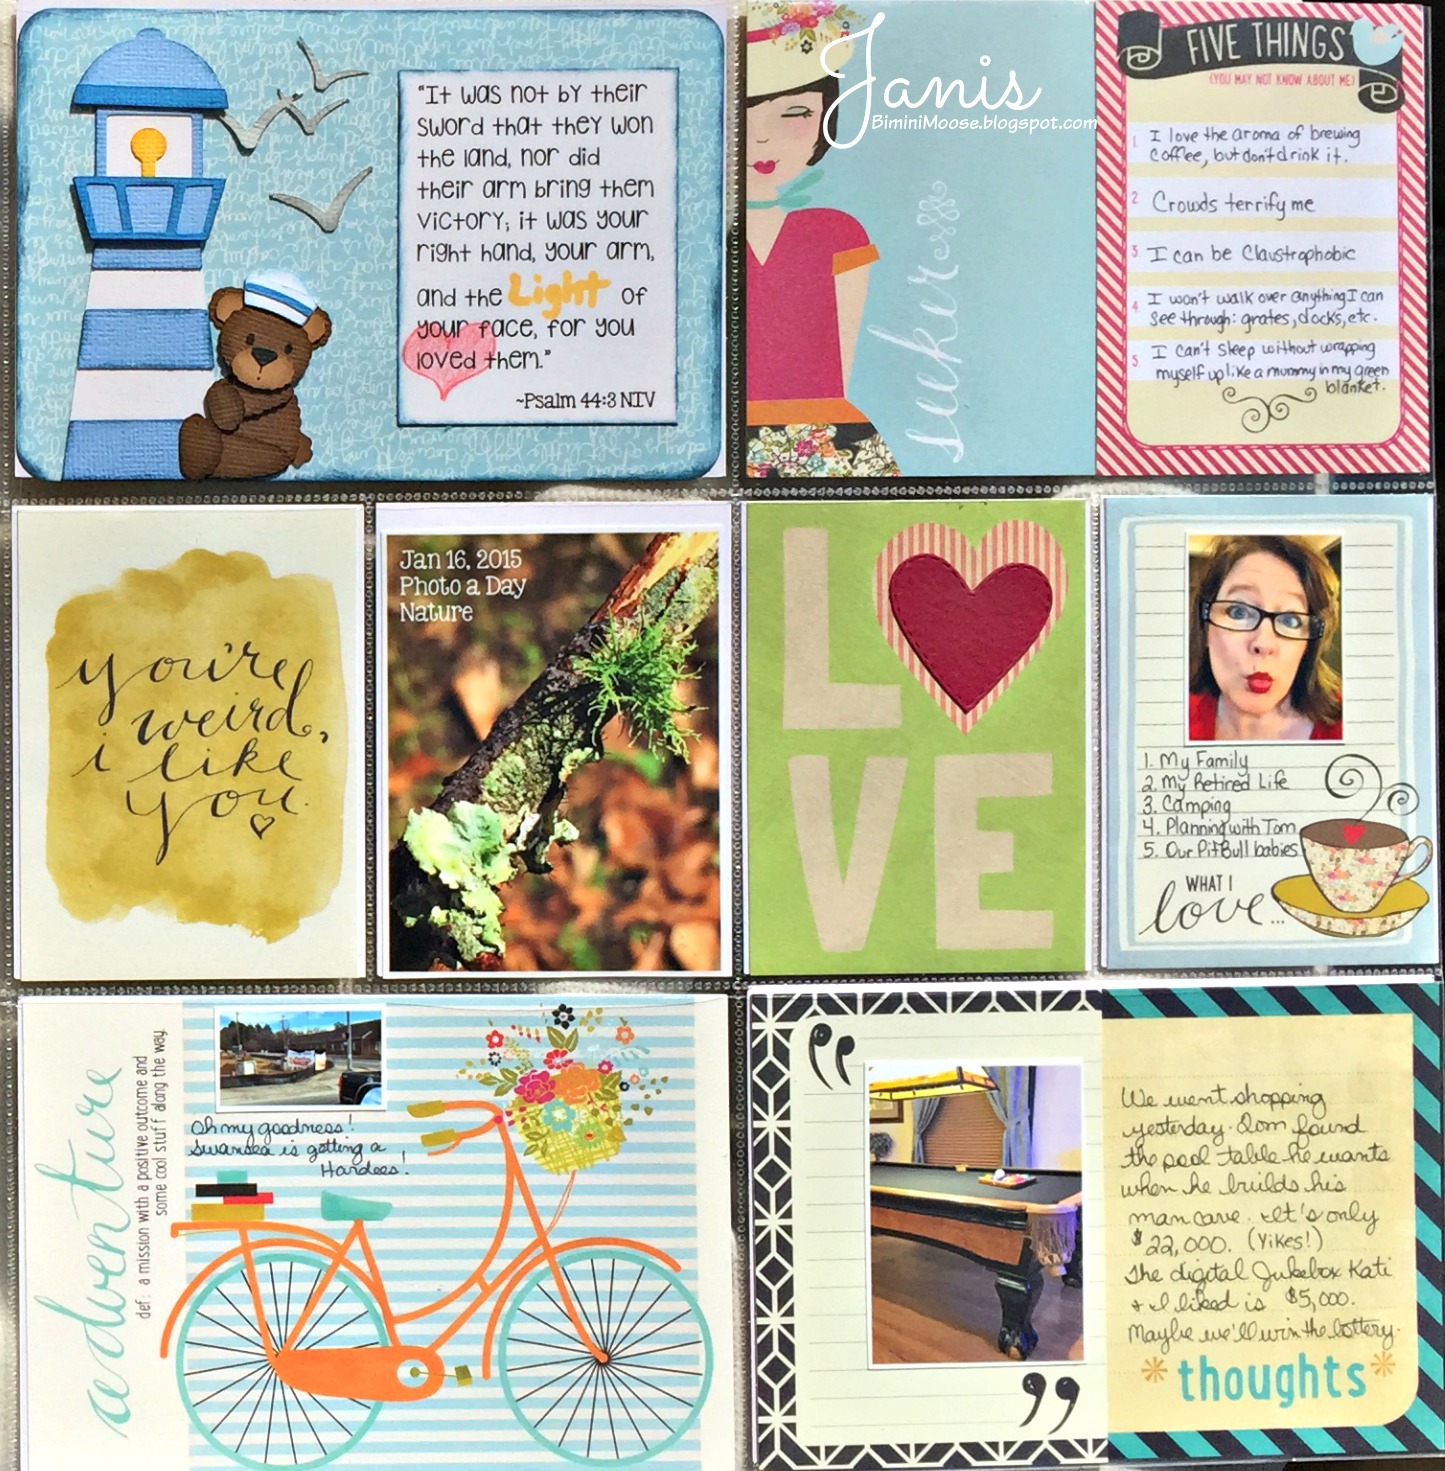 "It was not by their
sword that they won
the land, nor did
their arm bring them
victory; it was your
right hand, your arm,
and the Light of
your face, for you
loved them."
~Psalm 44:3 NIV
Janis
BiminiMoose.blogspot.com
seeker
FIVE THINGS
(YOU MAY NOT KNOW ABOUT ME)
1. I love the aroma of brewing
coffee, but don't drink it.
2. Crowds terrify me
3. I can be Claustrophobic
4. I won't walk over anything I can
see through: grates, docks, etc.
5. I can't sleep without wrapping
myself up like a mummy in my green
blanket.
you're
weird,
i like
you.
Jan 16, 2015
Photo a Day
Nature
LOVE
1. My Family
2. My Retired Life
3. Camping
4. Planning with Tom
5. Our PitBull babies
WHAT I
love...
adventure
def: a mission with a positive outcome and
some cool stuff along the way.
Oh my goodness!
Swansea is getting a
Hardees!
We went shopping
yesterday. Tom found
the pool table he wants
when he builds his
man cave. It's only
$22,000. (Yikes!)
The digital Jukebox Kati
& I liked is $5,000.
Maybe we'll win the lottery.
thoughts